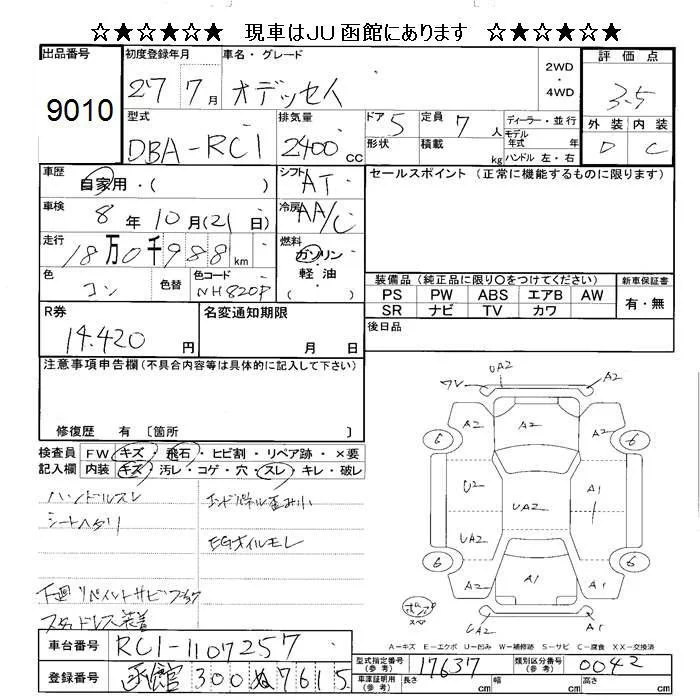 ☆★☆★☆ 現車はJU函館にあります ☆★☆★☆
出品番号 初度登録年月 車名・グレード 2WD・4WD 評価点
9010 27 7月 オデッセイ 3.5
型式 排気量 ドア 定員 ディーラー・並行 外装 内装
DBA-RC1 2400CC 5 7人 モデル年式 年 D C
形状 積載 kg ハンドル 左・右
車歴 自家用・( ) シフト AT セールスポイント (正常に機能するものに限ります)
車検 8年10月(21日) 冷房 AA/C
走行 18万0千988km 燃料 ガソリン・軽油 ( )
色 コン 色替 色コード NH820P
装備品 (純正品に限り〇をつけてください) 新車保証書
PS PW ABS エアB AW 有・無
SR ナビ TV カワ
R券 14.420円 名変通知期限 月 日 後日品
注意事項申告欄(不具合内容等は具体的に記入して下さい)
修復歴 有 〔箇所 〕
検査員 FW キズ・飛石・ヒビ割・リペア跡・×要
記入欄 内装 キズ・汚レ・コゲ・穴・スレ・キレ・破レ
ハンドルスレ エンドパネル歪み小
シートヘタリ
EGオイルモレ
下廻リペイントサビ
スタッドレス装着
ワレ UA2 A2
A2
6 A2 A2 6
U2 UA2 A1
6 UA2 A1 A1 6
スペア UA2 A2
A=キズ E=エクボ U=凹み W=補修跡 S=サビ C=腐食 XX=交換済
車台番号 RC1-1107257
型式指定番号(参考) 17637 類別区分番号(参考) 0042
登録番号 函館 300 ぬ 7615
車庫証明用(参考) 長さ cm 幅 cm 高さ cm